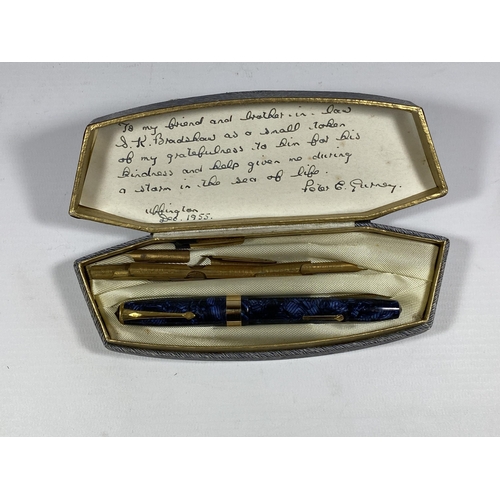 To my friend and brother-in-law
S. K. Bradshaw as a small token
of my gratefulness to him for his
kindness and help given me during
a storm in the sea of life.
Peter E. Gurney.
Uffington
Dec. 1955.